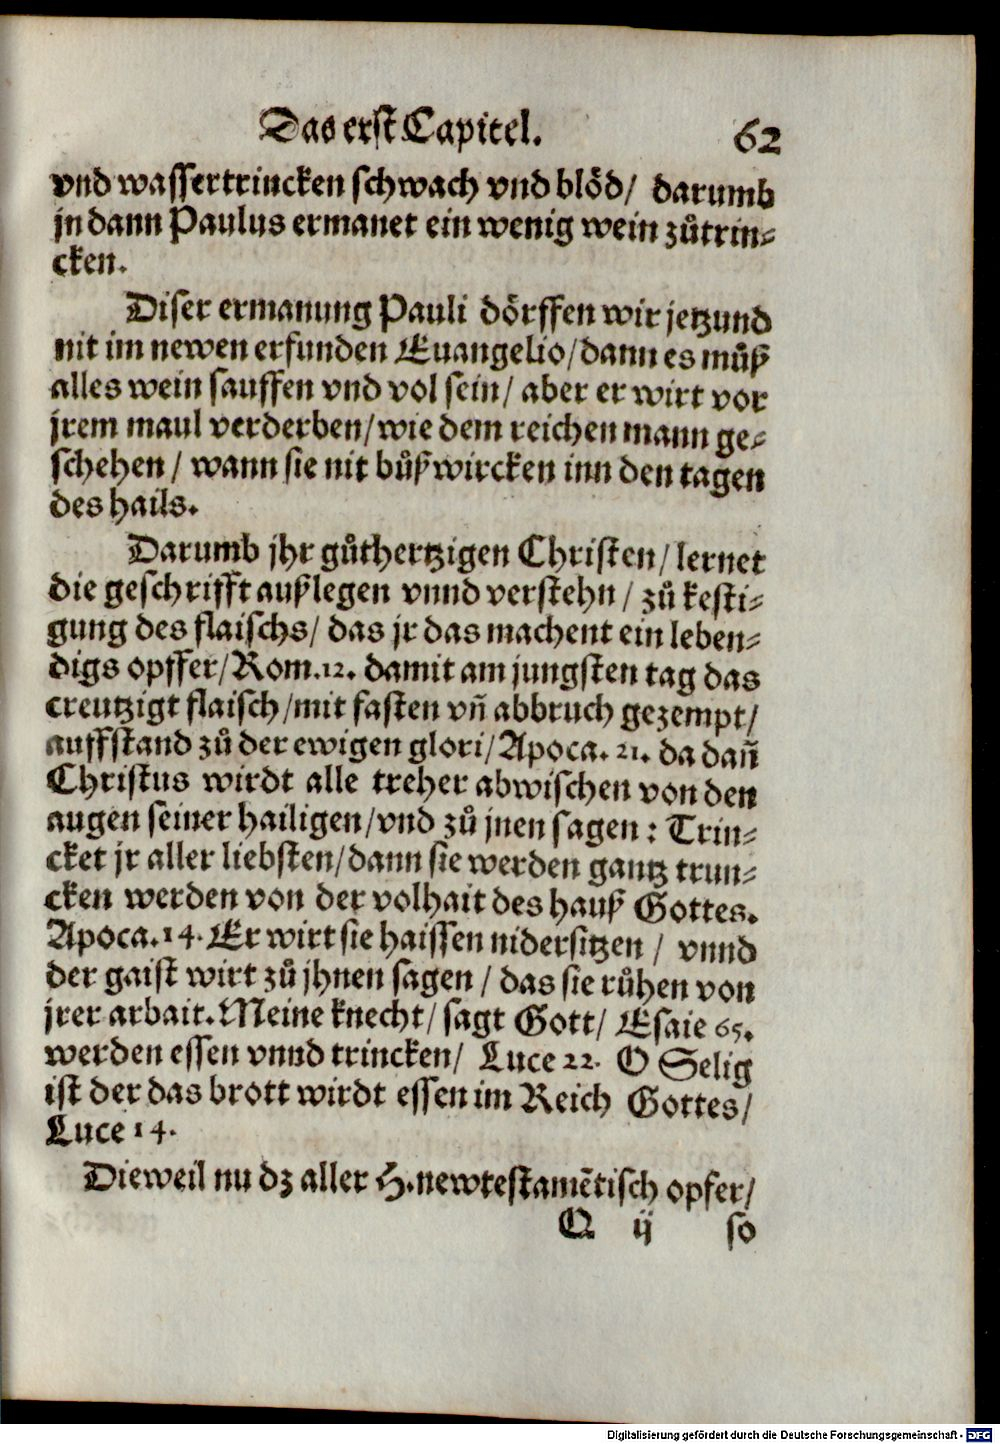 Das erst Capitel. 62
vnd wassertrincken schwach vnd blöd/ darumb
jn dann Paulus ermanet ein wenig wein zůtrin-
cken.
Diser ermanung Pauli dörffen wir jetzund
nit im newen erfunden Euangelio/dann es můß
alles wein sauffen vnd vol sein/ aber er wirt vor
jrem maul verderben/wie dem reichen mann ge-
schehen/ wann sie nit bůßwircken inn den tagen
des hails.
Darumb jhr gůthertzigen Christen/lernet
die geschrifft außlegen vnnd verstehn/ zů kesti-
gung des flaischs/ das jr das machent ein leben-
digs opffer/Rom.12. damit am jungsten tag das
creutzigt flaisch/mit fasten vñ abbruch gezempt/
auffstand zů der ewigen glori/Apoca. 21. da dañ
Christus wirdt alle treher abwischen von den
augen seiner hailigen/vnd zů jnen sagen: Trin-
cket jr aller liebsten/dann sie werden gantz trun-
cken werden von der volhait des hauß Gottes.
Apoca.14. Er wirt sie haissen nidersitzen/ vnnd
der gaist wirt zů jhnen sagen/ das sie růhen von
jrer arbait. Meine knecht/ sagt Gott/ Esaie 65.
werden essen vnnd trincken/ Luce 22. O Selig
ist der das brott wirdt essen im Reich Gottes/
Luce 14.
Dieweil nu dz aller H. newtestamẽtisch opfer/
Q ij so
Digitalisierung gefördert durch die Deutsche Forschungsgemeinschaft - DFG